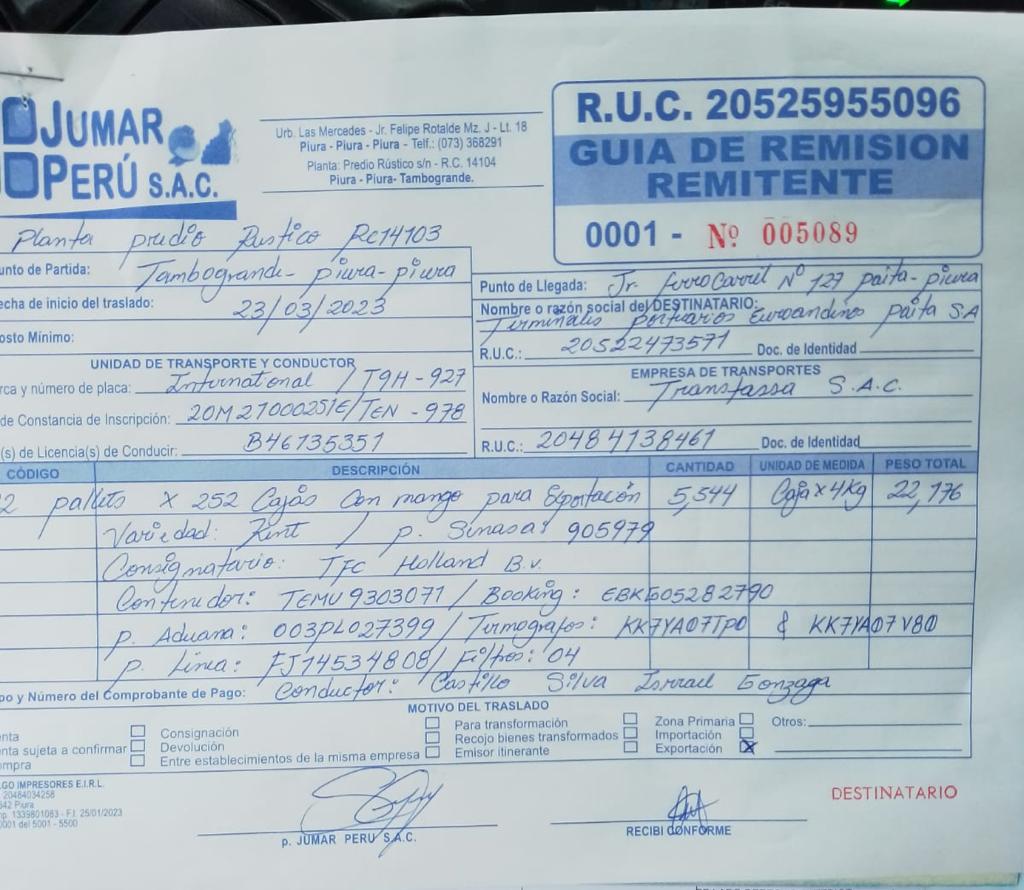 JUMAR
PERÚ S.A.C.
Urb. Las Mercedes - Jr. Felipe Rotalde Mz. J - Lt. 18
Piura - Piura - Piura - Telf.: (073) 368291
Planta: Predio Rústico s/n - R.C. 14104
Piura - Piura- Tambogrande.
R.U.C. 20525955096
GUIA DE REMISION
REMITENTE
0001 - Nº 005089
Planta predio Rustico Rc14103
unto de Partida: Tambogrande - piura - piura
echa de inicio del traslado: 23/03/2023
osto Mínimo:
Punto de Llegada: Jr. ferroCarril Nº 127 paita - piura
Nombre o razón social del DESTINATARIO:
Terminales portuarios Euroandinos paita S.A
R.U.C.: 20522473571 Doc. de Identidad
UNIDAD DE TRANSPORTE Y CONDUCTOR
rca y número de placa: International / T9H-927
de Constancia de Inscripción: 20M21000251E/TEN-978
(s) de Licencia(s) de Conducir: B46135351
EMPRESA DE TRANSPORTES
Nombre o Razón Social: Transfassa S.A.C.
R.U.C.: 20484138461 Doc. de Identidad
CÓDIGO DESCRIPCIÓN CANTIDAD UNIDAD DE MEDIDA PESO TOTAL
2 pallets x 252 Cajas Con mango para Exportación 5,544 Caja x 4Kg 22,176
Variedad: Kent / p. Sinasa: 905979
Consignatario: TFC Holland B.v.
Contenedor: TEMU9303071 / Booking: EBKG05282790
p. Aduana: 003PL027399 / Termografos: KK7YA07TP0 & KK7YA07V80
p. Linea: FJ14534808 / Filtros: 04
po y Número del Comprobante de Pago: Conductor: Castillo Silva Isrrael Gonzaga
MOTIVO DEL TRASLADO
enta
enta sujeta a confirmar
mpra
Consignación
Devolución
Entre establecimientos de la misma empresa
Para transformación
Recojo bienes transformados
Emisor itinerante
Zona Primaria
Importación
Exportación X
Otros:
GO IMPRESORES E.I.R.L.
20484034258
642 Piura
mp. 1339801083 - F.I. 25/01/2023
0001 del 5001 - 5500
p. JUMAR PERU S.A.C.
RECIBI CONFORME
DESTINATARIO